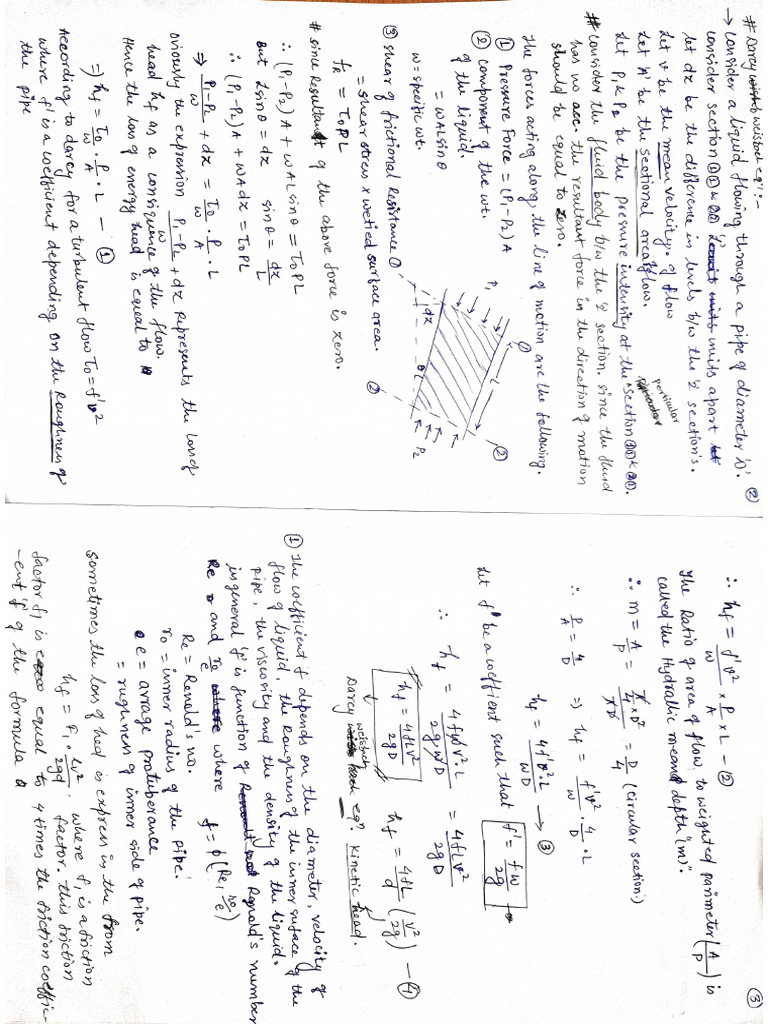 ②
# Darcy weisbach eqⁿ:-
→ Consider a liquid flowing through a pipe of diameter 'D'.
consider section ①① & ②② 'L' units apart
let dz be the difference in levels b/w the 2 section's.
Let v be the mean velocity. of flow
Let 'A' be the sectional area of flow.
Let P₁ & P₂ be the pressure intensity at the section ①① & ②②.
perticular
# Consider the fluid body b/w the '2' section, since the fluid
has no acc. the resultant force in the direction of motion
should be equal to zero.
The forces acting along, the line of motion are the following.
① Pressure Force = (P₁-P₂)A
② component of the wt.
of the liquid.
= wALsinθ
w = specific wt.
③ shear of frictional Resistance
= shear stress x wetied surface area.
fR = T₀PL
① ②
P₁ L
dz θ
① ② P₂
# since Resultant of the above force is zero.
∴ (P₁-P₂)A + wALsinθ = T₀PL
but Lsinθ = dz sinθ = dz/L
∴ (P₁-P₂)A + wAdz = T₀PL
⇒ (P₁-P₂)/w + dz = T₀/w . P/A . L
oviously the expression (P₁-P₂)/w + dz Represents the loss of
head hf as a consiquence of the flow.
Hence the loss of energy head is equal to
⇒ hf = T₀/w . P/A . L — ①
According to darcy for a turbulent flow T₀ = f'v²
where f' is a coefficient depending on the Roughness of
the pipe
③
∴ hf = f'v²/w x P/A x L — ②
The Ratio of area of flow to weighted parimeter (A/P) is
called the Hydrallic mean depth "(m)".
∴ m = A/P = (π/4 x D²)/(πD) = D/4 (circular section.)
∴ P/A = 4/D ⇒ hf = f'v²/w . 4/D . L
hf = 4f'v².L/wD → ③
Let f be a coefficient such that f' = fw/2g
∴ hf = 4fwv².L/2g.wD = 4fLv²/2gD
hf = 4fLV²/2gD hf = 4fL/d (V²/2g) — ④
Darcy weisbach eqⁿ. Kinetic head.
① The coefficient f depends on the diameter, velocity of
flow of liquid, the Roughness of the inner surface of the
pipe, the viscosity and the density of the liquid.
in general 'f' is function of Regnold's number
Re and r₀/e where f = ϕ(Re, r₀/e)
Re = Renold's no.
r₀ = inner radius of the pipe.
e = avrage protuperance
= rughness of inner side of pipe.
Sometimes the loss of had is express in the from
hf = f₁ . Lv²/2gd, where f₁ is a friction
factor. this friction
factor f₁ is equal to 4 times the friction coeffic-
-ent 'f' of the formula